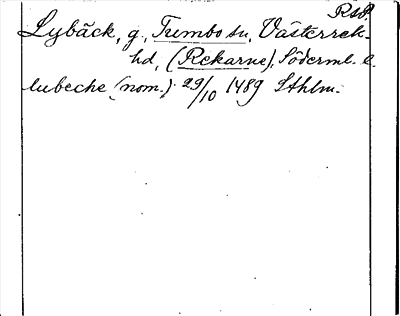 RAP.
Lybäck, g., Tumbo sn, Västerrek-
hd, (Rekarne), Söderml. l.
lubeche (nom.) 29/10 1489 Sthlm.